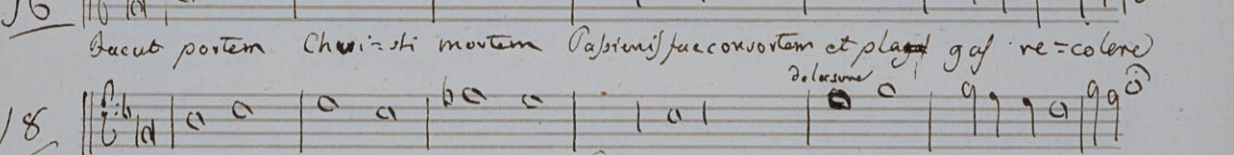 16
Facut portem Chri=sti mortem Passionis suae consortem et plagas re=colere
dolorsune
18